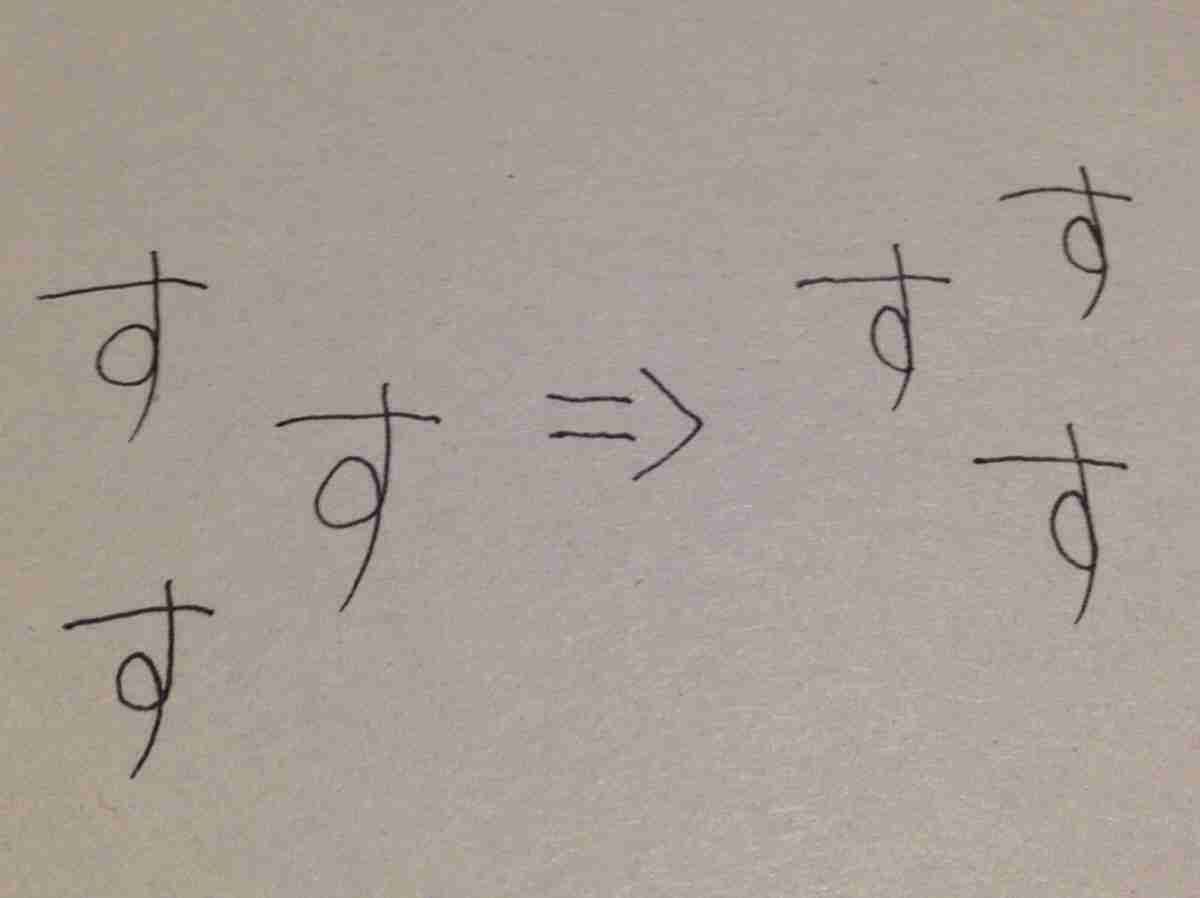 す
す す
す ⇒ す
す